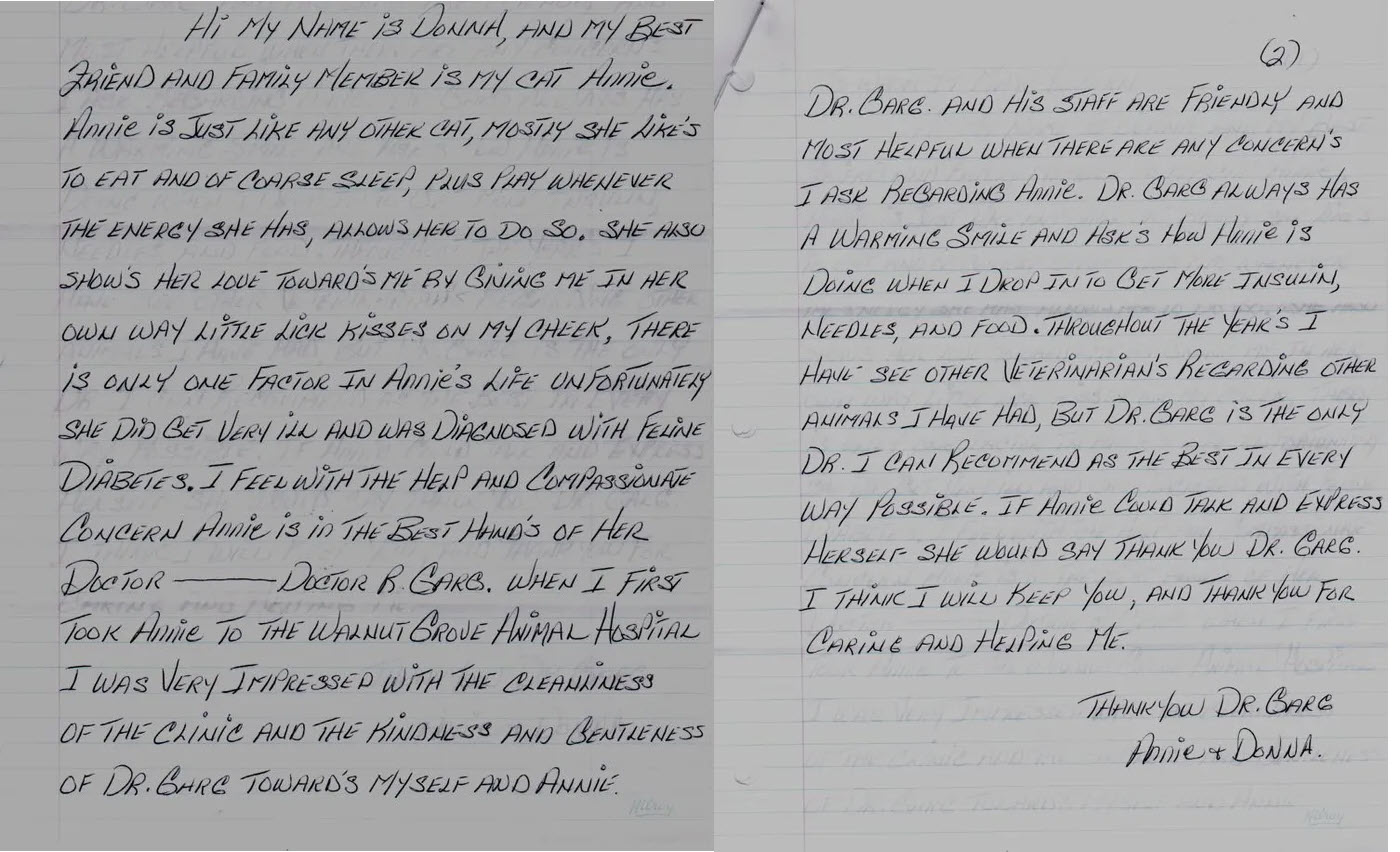 Hi MY NAME iS DONNA, AND MY BEST
FRIEND AND FAMILY MEMBER iS MY CAT ANNiE.
ANNiE iS JUST LiKE ANY OTHER CAT, MOSTLY SHE LiKE'S
TO EAT AND OF COARSE SLEEP, PLUS PLAY WHENEVER
THE ENERGY SHE HAS, ALLOWS HER TO DO SO. SHE ALSO
SHOW'S HER LOVE TOWARD'S ME BY GiViNG ME IN HER
OWN WAY LiTTLE LiCK KiSSES ON MY CHEEK, THERE
iS ONLY ONE FACTOR IN ANNiE'S LiFE UNFORTUNATELY
SHE DiD GET VERY iLL AND WAS DiAGNOSED WiTH FELiNE
DiABETES. I FEEL WiTH THE HELP AND COMPASSiONATE
CONCERN ANNiE iS iN THE BEST HAND'S OF HER
DOCTOR ——— DOCTOR R. GARG. WHEN I FiRST
TOOK ANNiE TO THE WALNUT GROVE ANiMAL HOSPiTAL
I WAS VERY IMPRESSED WiTH THE CLEANLiNESS
OF THE CLiNiC AND THE KiNDNESS AND GENTLENESS
OF DR. GARG TOWARD'S MYSELF AND ANNiE.
Hilroy
(2)
DR. GARG. AND HiS STAFF ARE FRiENDLY AND
MOST HELPFUL WHEN THERE ARE ANY CONCERN'S
I ASK REGARDiNG ANNiE. DR. GARG ALWAYS HAS
A WARMiNG SMiLE AND ASK'S HOW ANNiE iS
DOiNG WHEN I DROP IN TO GET MORE INSULiN,
NEEDLES, AND FOOD. THROUGHOUT THE YEAR'S I
HAVE SEE OTHER VETERiNARiAN'S REGARDiNG OTHER
ANiMALS I HAVE HAD, BUT DR. GARG iS THE ONLY
DR. I CAN RECOMMEND AS THE BEST IN EVERY
WAY POSSiBLE. IF ANNiE COULD TALK AND EXPRESS
HERSELF SHE WOULD SAY THANK YOU DR. GARG.
I THiNK I WiLL KEEP YOU, AND THANK YOU FOR
CARiNG AND HELPiNG ME.
THANK YOU DR. GARG
ANNiE & DONNA.
Hilroy